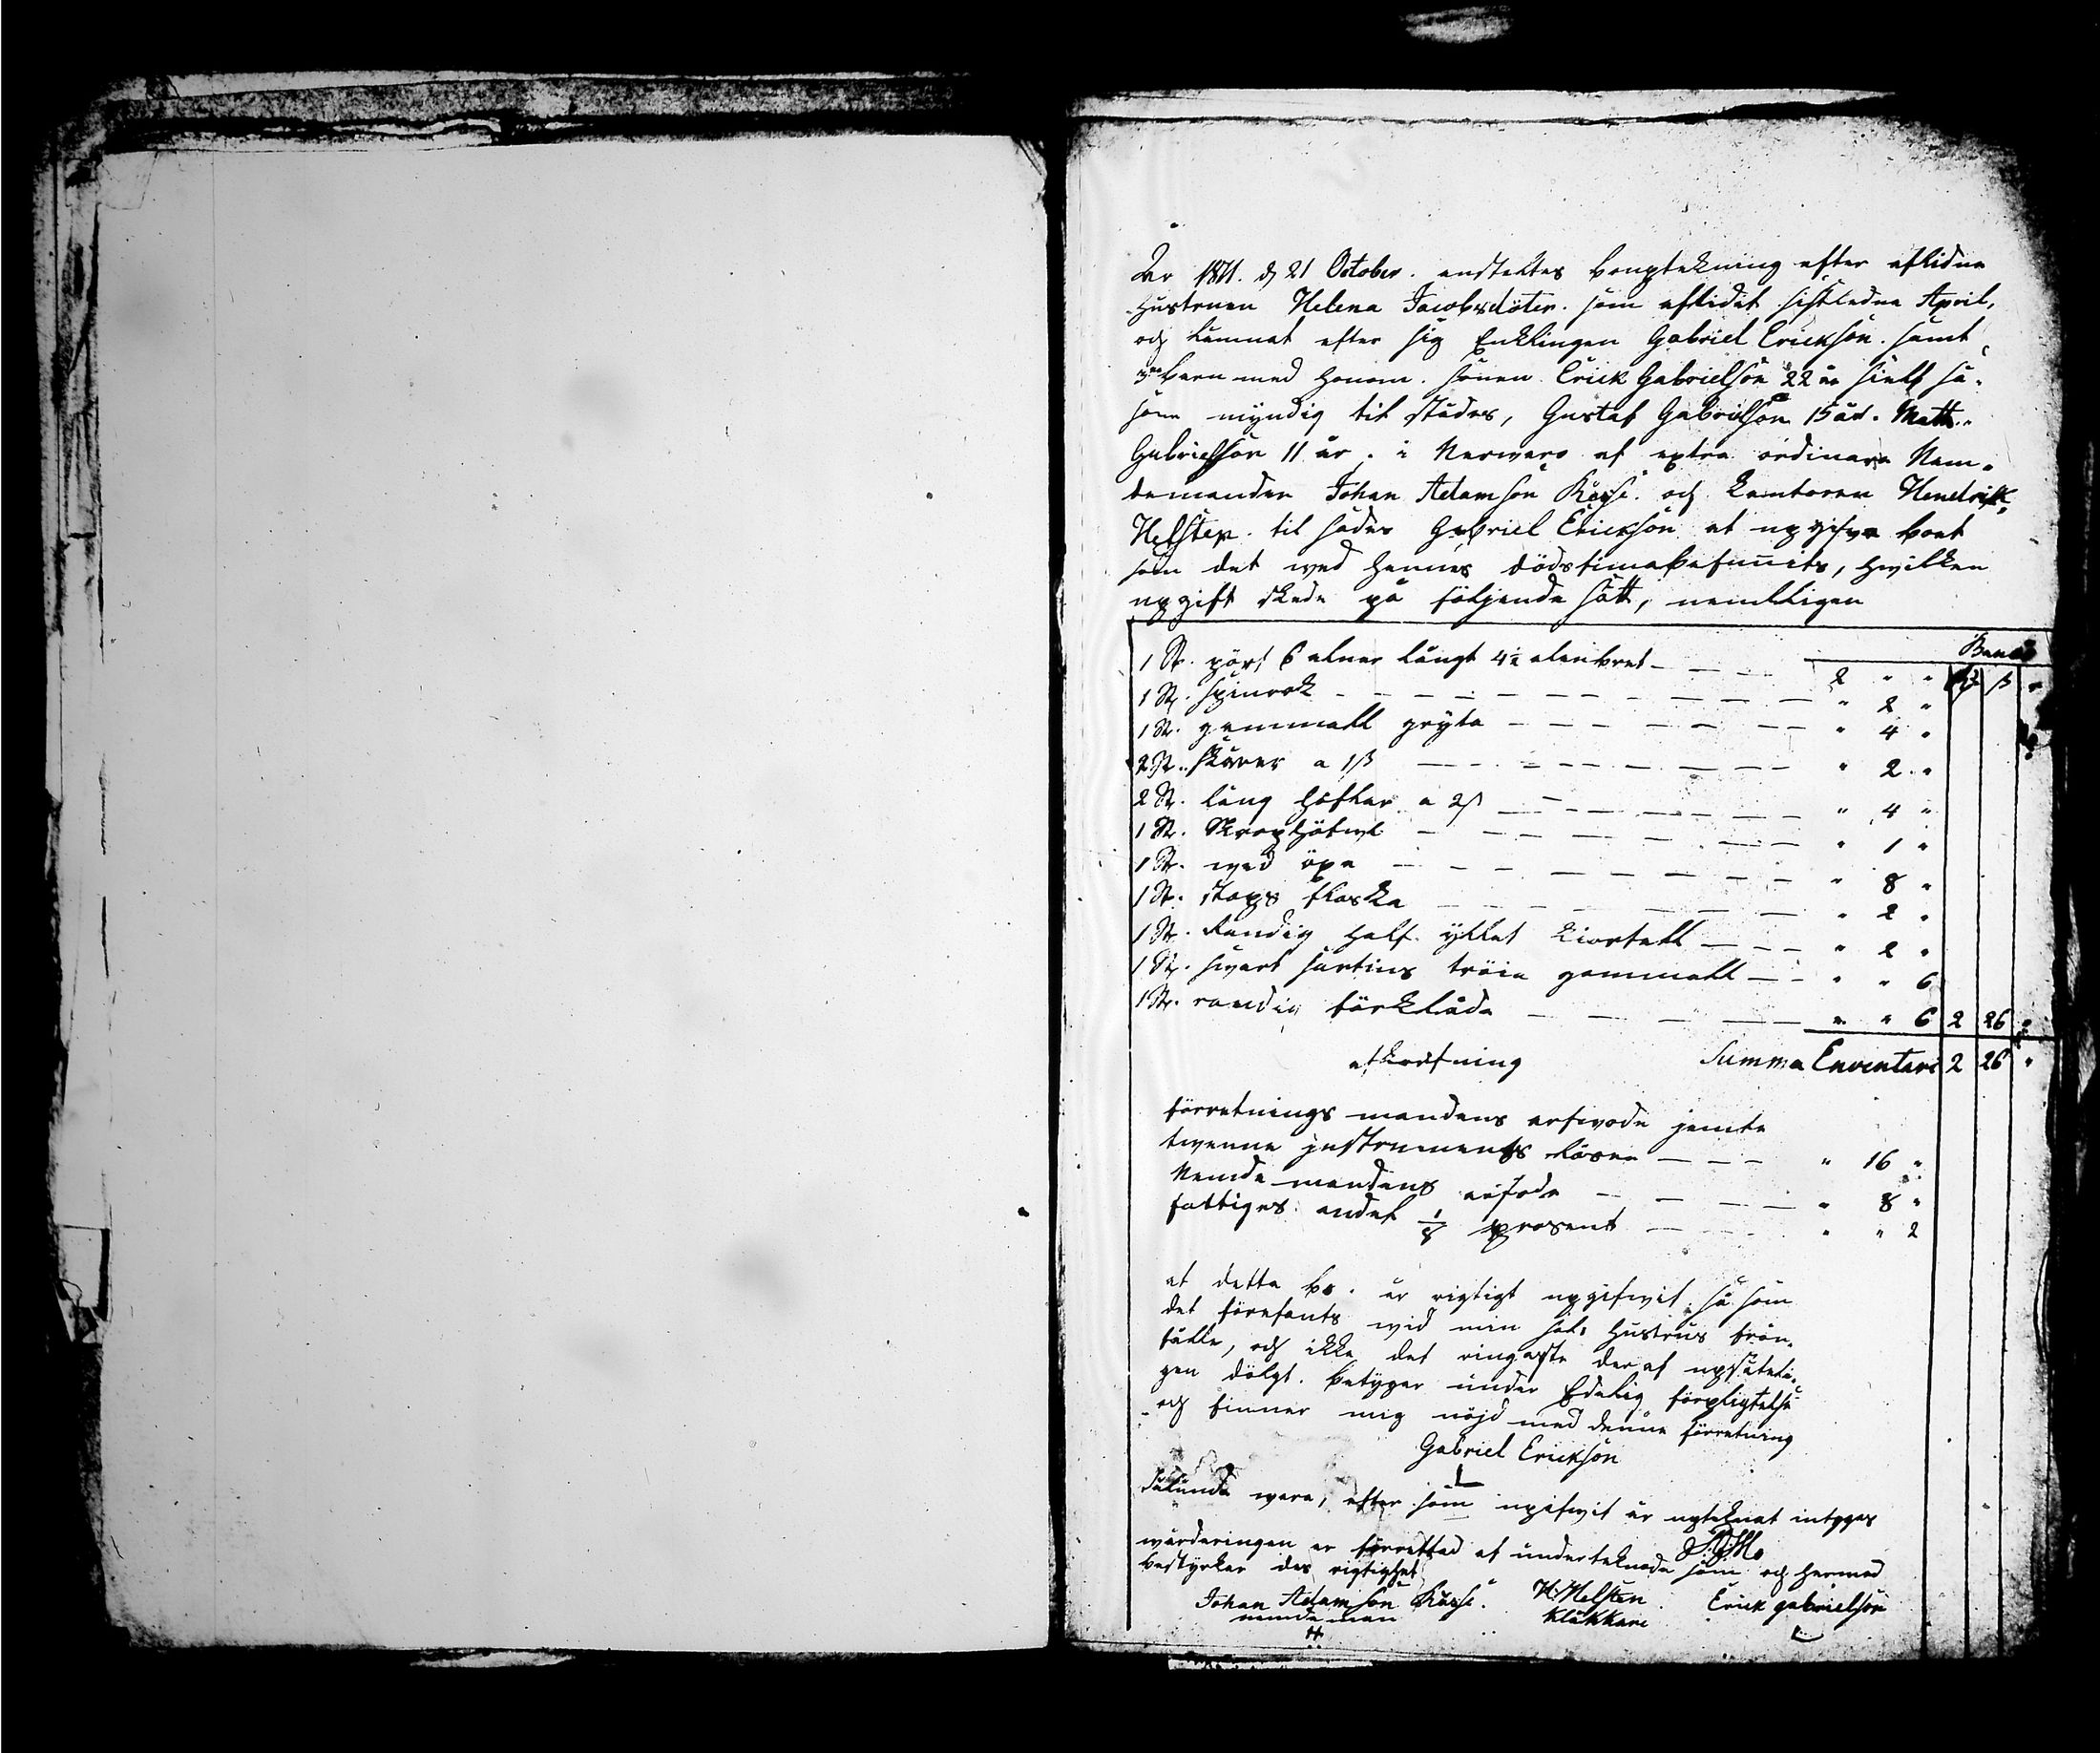 År 1811. d 21 October. anstältes bouptekning efter aflidne
Hustruen Helena Jacobsdoter. som aflidit sistledne April,
och lämnat efter sig Enklingen Gabriel Erickson. samt
3ne barn med honom. sönen Erick Gabrielson 22 år sielf så-
som myndig till städes, Gustaf Gabrielson 15 år. Matts
Gabrielson 11 år. i Närwaro af extra ordinare Näm-
demanden Johan Adamson och Cantoren Hendrik
Helsten. til sades Gabriel Erickson at upgifva boet
som det wed hennes dödstima befunits, hwilken
upgift skede på följande sätt, nemlligen
Banco
1 St. pört 6 alnar långt 4½ alen bret — 2 " "
1 St. Spinrok — " 2 "
1 St. gammall gryta — " 4 "
2 St. skäror a 1 ß — " 2 "
2 St. lång höflar a 2 ß — " 4 "
1 St. Skrophöfwel — " 1 "
1 St. wed öxa — " 8 "
1 St. stops flaska — " 2 "
1 St. Randig half yllet kiortell — " 2 "
1 St. swart sartins tröia gammall — " " 6
1 St. randig förkläde — " " 6 2 26 "
afkortning Summa Enventari 2 26 "
förretnings mandens arfwode jemte
twenne instruments lösen — " 16 "
Nemde mandens arfode — " 8 "
fattiges andel 1/8 prosent — " " 2
at detta bo. är rigtigt upgifwit så som
det förefants wid min sal. Hustrus från-
fälle, och ikke det ringaste deraf upsåteli-
gen dölgt. betyger under Edelig förpligtelse
och finner mig nöjd med denne förretning
Gabriel Erickson
Sålunda wara, efter som upgifwit är upteknat intyges
wärderingen är förrettad af underteknade som och hermed
bestyrker des rigtighet
Johan Adamson H: Helsten Erick gabrielson
nemdeman Kläkkare